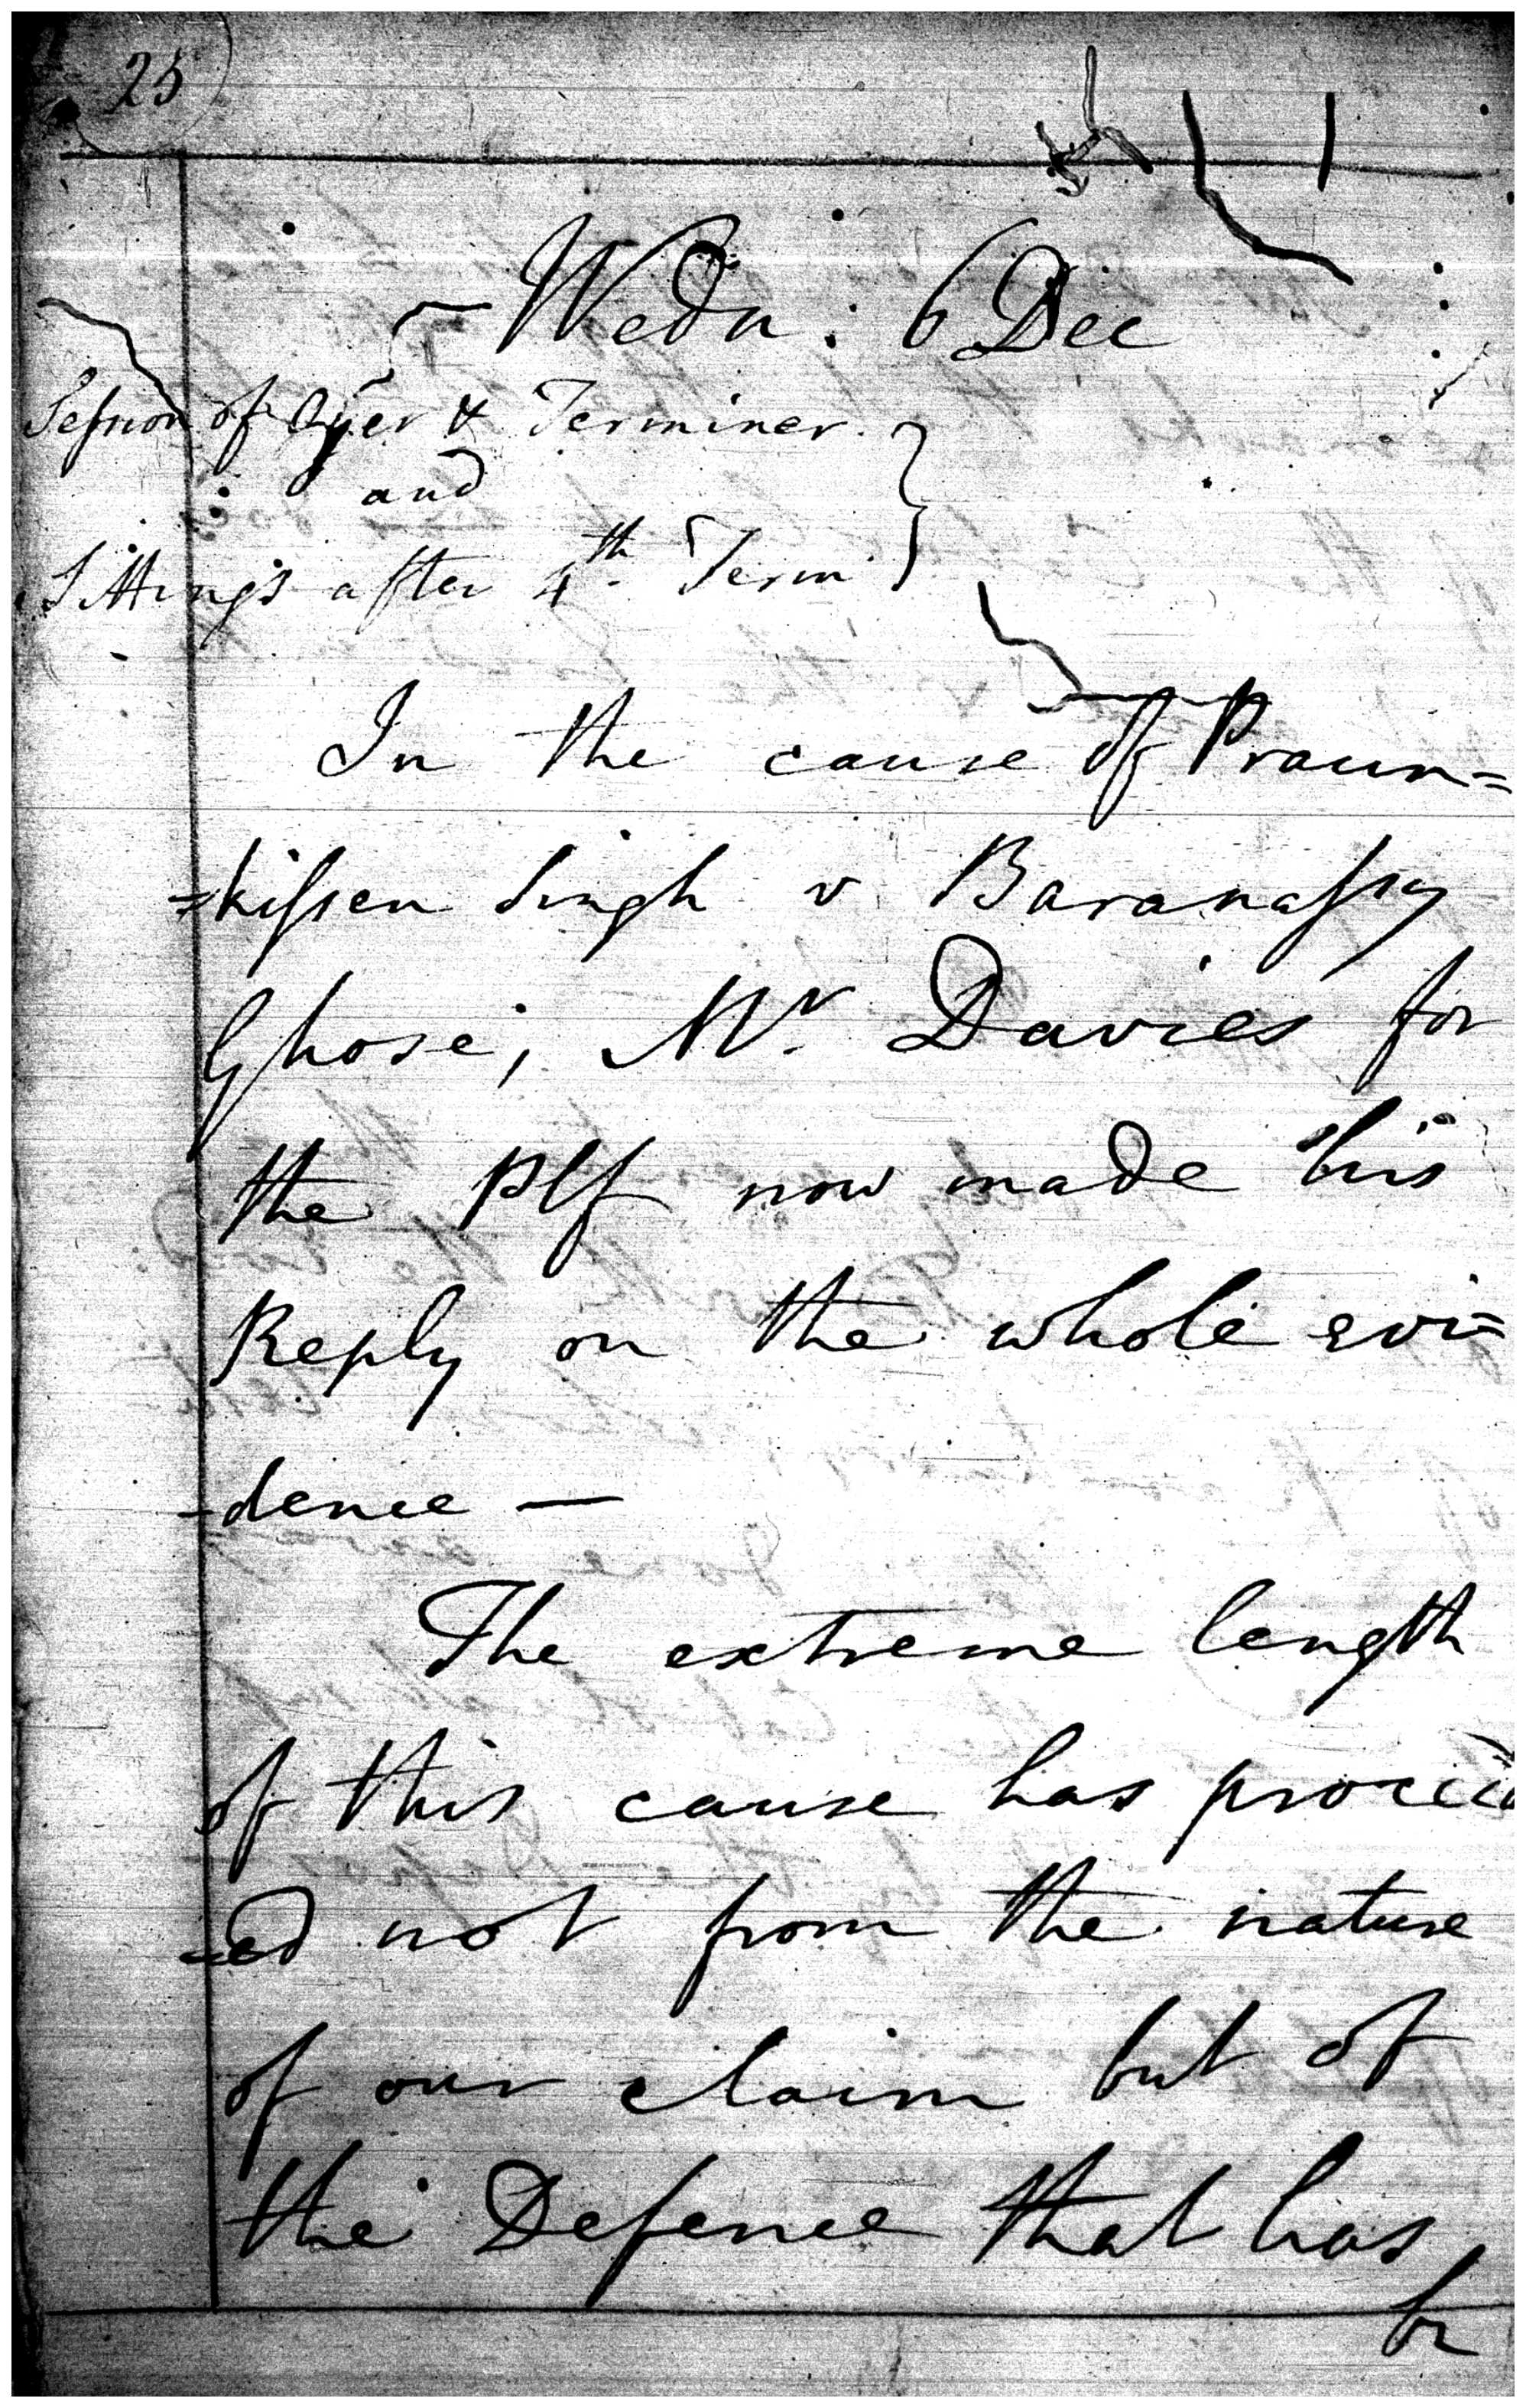 25
Wedn: 6 Dec
Session of Oyer & Terminer
and
Sittings after 4th Term
In the cause of Praun=
=kissen Singh v Baranassy
Ghose; Mr Davies for
the Plf now made his
Reply on the whole evi=
-dence —
The extreme length
of this cause has proceed
=ed not from the nature
of our claim but of
the Defence that has
be